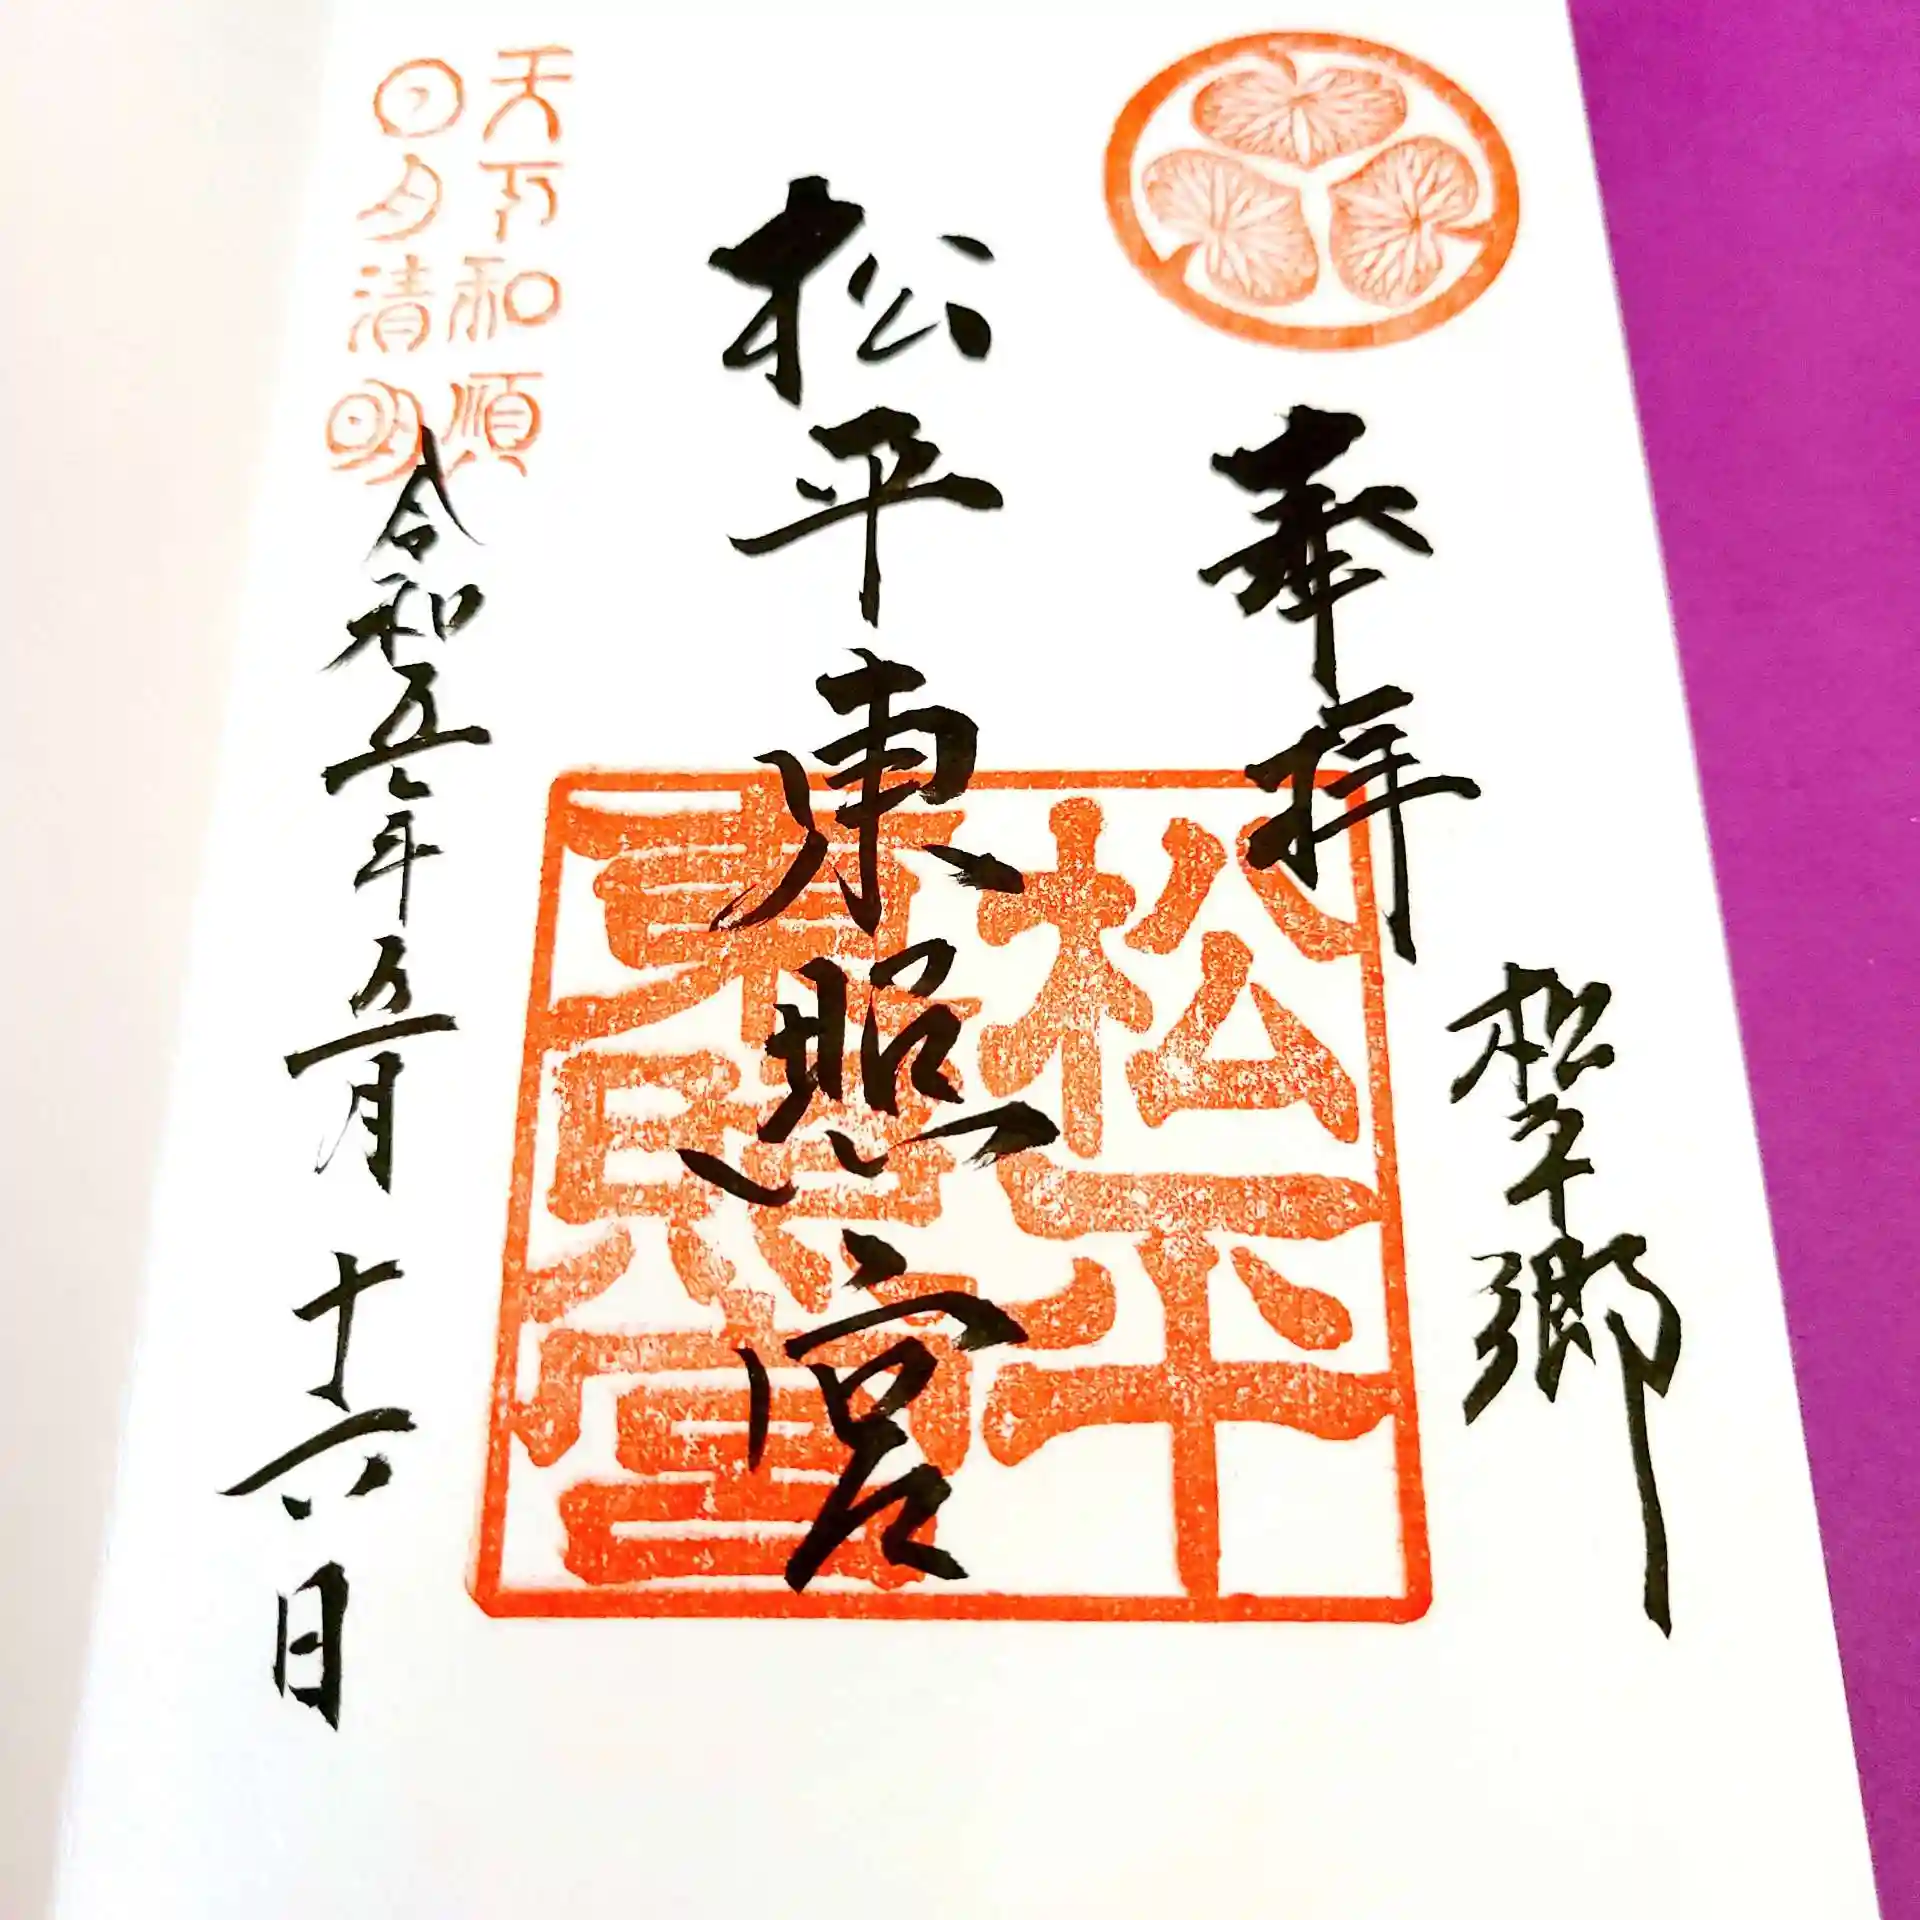 奉拝
松平郷
松平東照宮
松平
東照宮
天下和順
日月清明
令和五年五月十六日